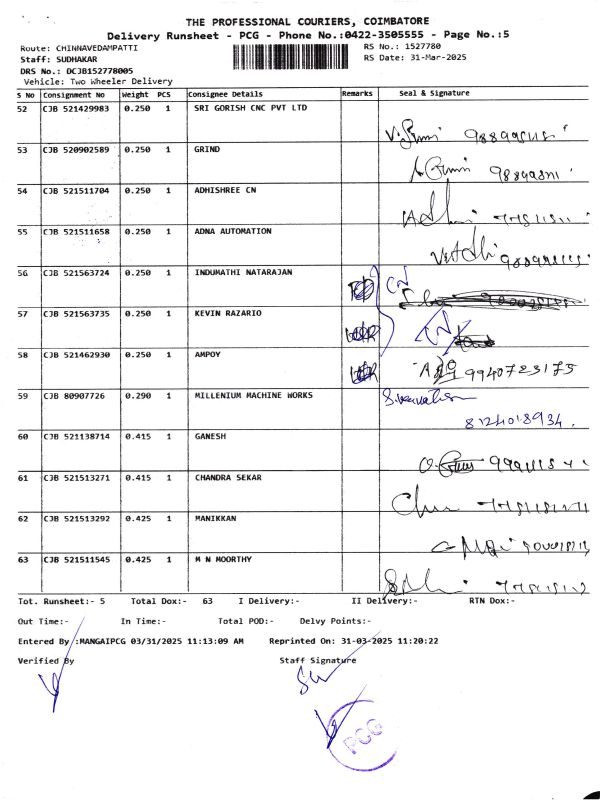 THE PROFESSIONAL COURIERS, COIMBATORE
Delivery Runsheet - PCG - Phone No.:0422-3505555 - Page No.:5
Route: CHINNAVEDAMPATTI RS No.: 1527780
Staff: SUDHAKAR RS Date: 31-Mar-2025
DRS No.: DCJB152778005
Vehicle: Two Wheeler Delivery
S No Consignment No Weight PCS Consignee Details Remarks Seal & Signature
52 CJB 521429983 0.250 1 SRI GORISH CNC PVT LTD
53 CJB 520902589 0.250 1 GRIND
54 CJB 521511704 0.250 1 ADHISHREE CN
55 CJB 521511658 0.250 1 ADNA AUTOMATION
56 CJB 521563724 0.250 1 INDUMATHI NATARAJAN
57 CJB 521563735 0.250 1 KEVIN RAZARIO
58 CJB 521462930 0.250 1 AMPOY
9940723175
59 CJB 80907726 0.290 1 MILLENIUM MACHINE WORKS
8124018934
60 CJB 521138714 0.415 1 GANESH
61 CJB 521513271 0.415 1 CHANDRA SEKAR
62 CJB 521513292 0.425 1 MANIKKAN
63 CJB 521511545 0.425 1 M N MOORTHY
Tot. Runsheet:- 5 Total Dox:- 63 I Delivery:- II Delivery:- RTN Dox:-
Out Time:- In Time:- Total POD:- Delvy Points:-
Entered By :MANGAIPCG 03/31/2025 11:13:09 AM Reprinted On: 31-03-2025 11:20:22
Verified By Staff Signature
PCG